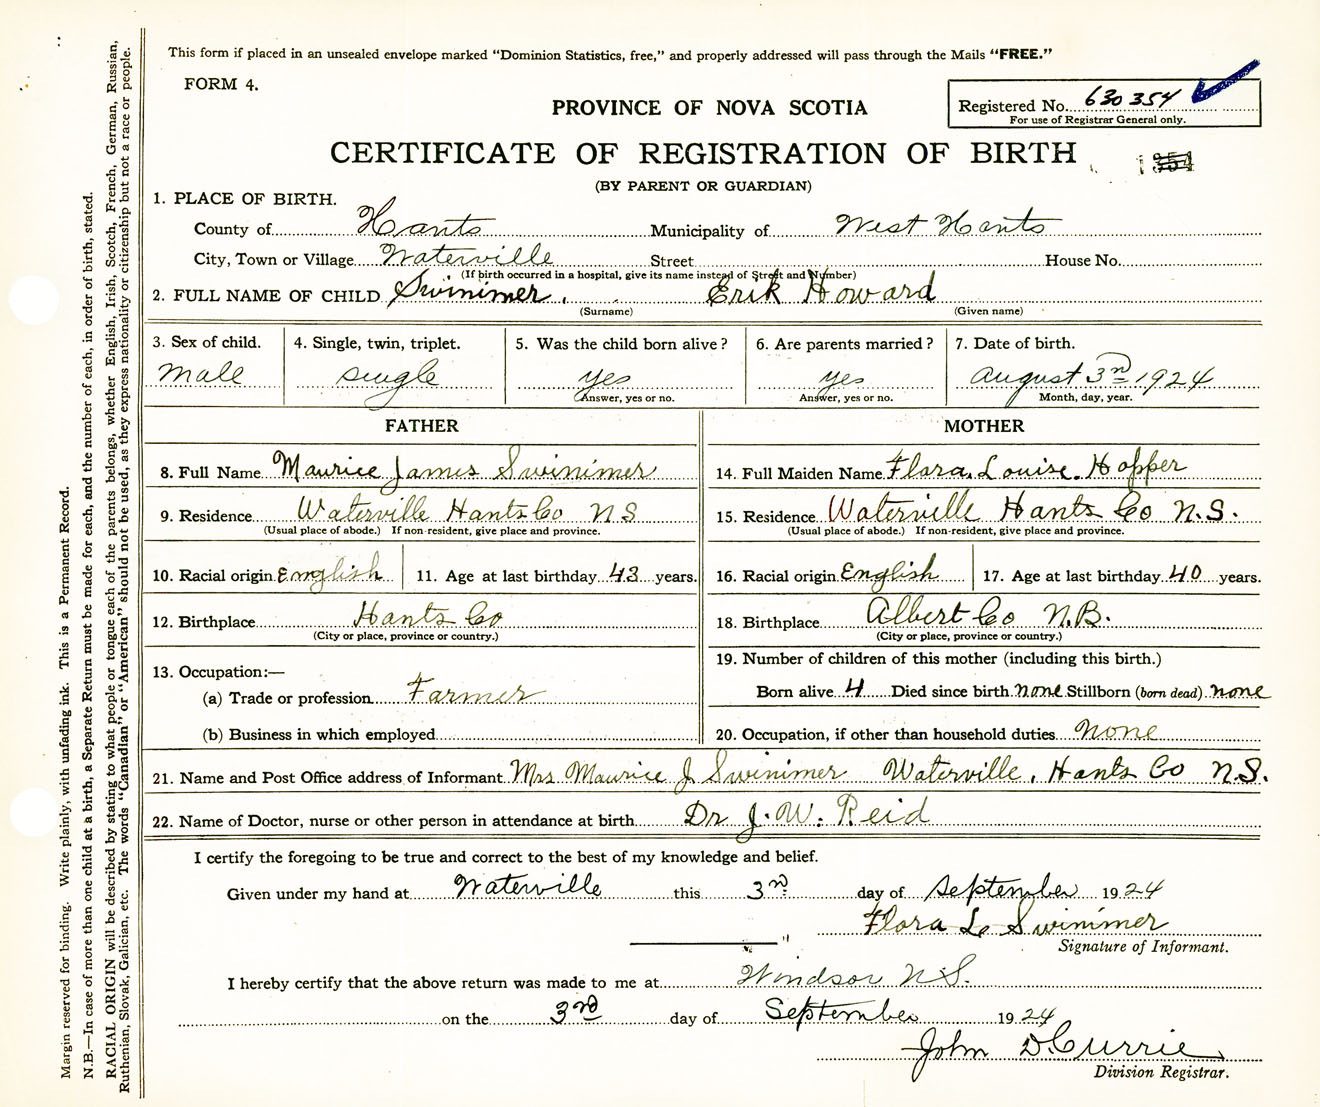 This form if placed in an unsealed envelope marked "Dominion Statistics, free," and properly addressed will pass through the Mails "FREE."
FORM 4.
PROVINCE OF NOVA SCOTIA
Registered No. 630354
For use of Registrar General only.
CERTIFICATE OF REGISTRATION OF BIRTH
(BY PARENT OR GUARDIAN)
1. PLACE OF BIRTH.
County of Hants Municipality of West Hants
City, Town or Village Waterville Street House No.
(If birth occurred in a hospital, give its name instead of Street and Number)
2. FULL NAME OF CHILD Swinimer. Erik Howard
(Surname) (Given name)
3. Sex of child. 4. Single, twin, triplet. 5. Was the child born alive? 6. Are parents married? 7. Date of birth.
Male single yes yes August 3rd 1924
Answer, yes or no. Answer, yes or no. Month, day, year.
FATHER MOTHER
8. Full Name Maurice James Swinimer 14. Full Maiden Name Flora. Louise. Hopper
9. Residence Waterville Hants Co N S 15. Residence Waterville Hants Co N.S.
(Usual place of abode.) If non-resident, give place and province. (Usual place of abode.) If non-resident, give place and province.
10. Racial origin English 11. Age at last birthday 43 years. 16. Racial origin English 17. Age at last birthday 40 years.
12. Birthplace Hants Co 18. Birthplace Albert Co N.B.
(City or place, province or country.) (City or place, province or country.)
13. Occupation:— 19. Number of children of this mother (including this birth.)
(a) Trade or profession Farmer Born alive 4 Died since birth none Stillborn (born dead) none
(b) Business in which employed 20. Occupation, if other than household duties None
21. Name and Post Office address of Informant Mrs Maurice J Swinimer Waterville, Hants Co N.S.
22. Name of Doctor, nurse or other person in attendance at birth Dr J. W. Reid
I certify the foregoing to be true and correct to the best of my knowledge and belief.
Given under my hand at Waterville this 3rd day of September 1924
Flora L Swinimer
Signature of Informant.
I hereby certify that the above return was made to me at Windsor N.S.
on the 3rd day of September 1924
John D. Currie
Division Registrar.
Margin reserved for binding. Write plainly, with unfading ink. This is a Permanent Record.
N.B.—In case of more than one child at a birth, a Separate Return must be made for each, and the number of each, in order of birth, stated.
RACIAL ORIGIN will be described by stating to what people or tongue each of the parents belongs, whether English, Irish, Scotch, French, German, Russian,
Ruthenian, Slovak, Galician, etc. The words "Canadian" or "American" should not be used, as they express nationality or citizenship but not a race or people.